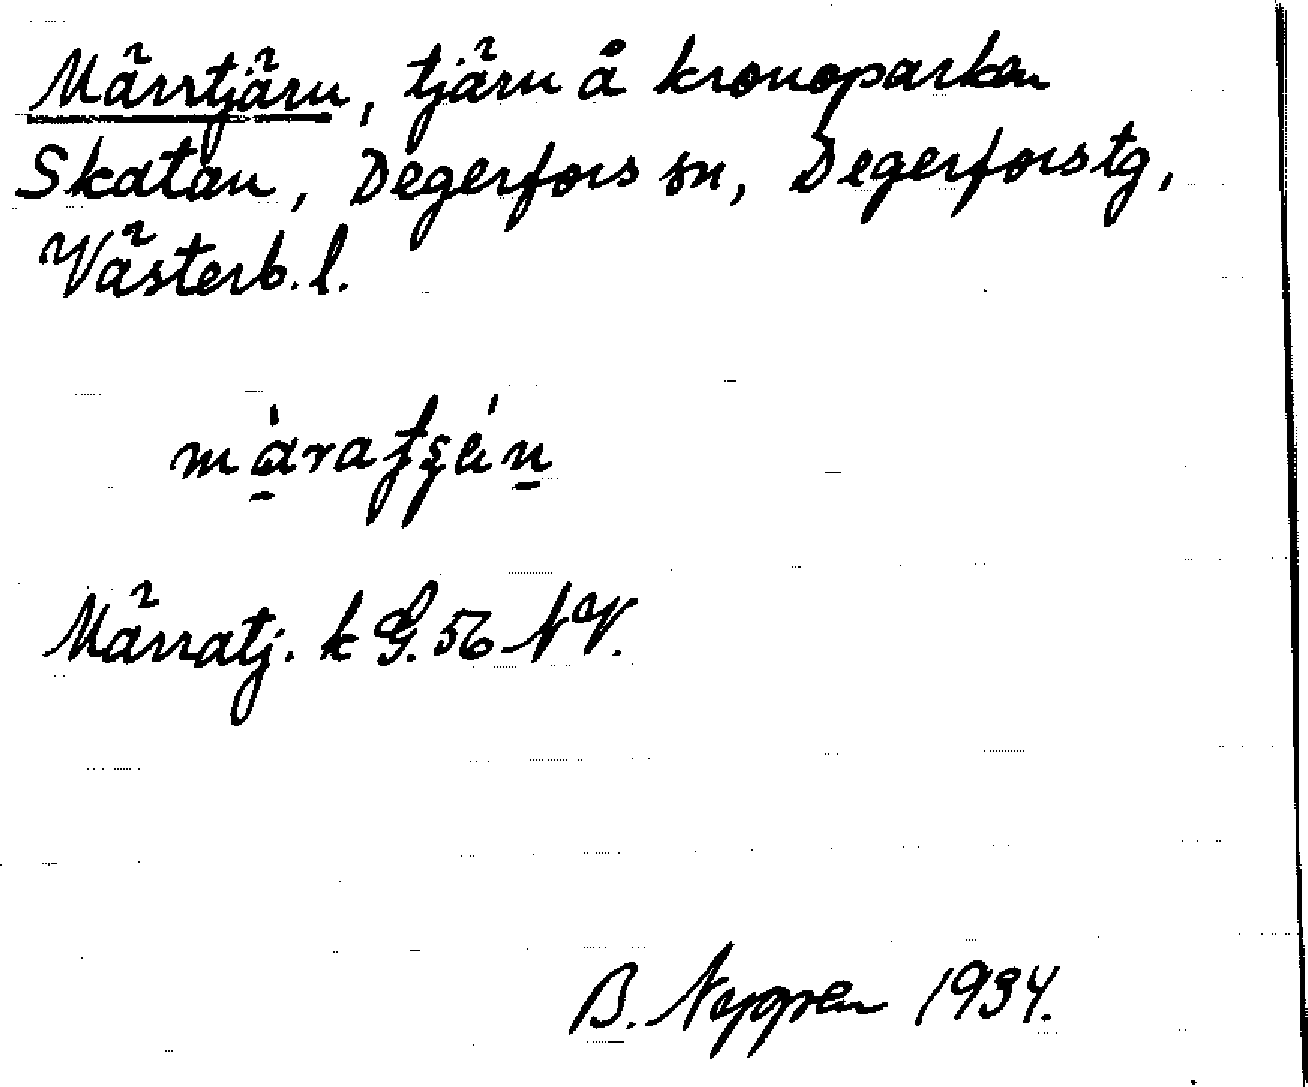 Märrtjärn, tjärn å kronoparken
Skatan, Degerfors sn, Degerfors tg,
Västerb. l.
Märratj. k G. 56 NV.
B. Nygren 1934.